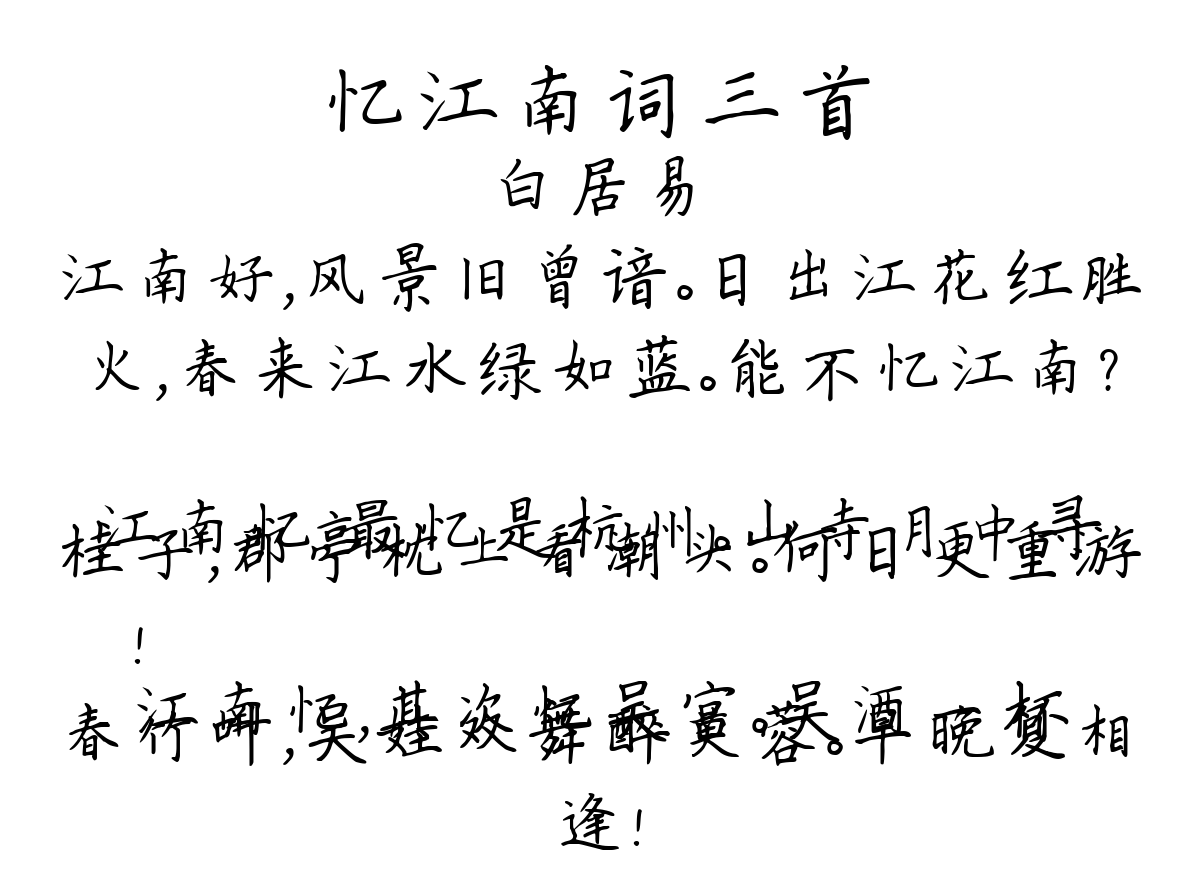 忆江南词三首
白居易
江南好,风景旧曾谙。日出江花红胜
火,春来江水绿如蓝。能不忆江南?
江南忆,最忆是杭州。山寺月中寻
桂子,郡亭枕上看潮头。何日更重游
!
江南忆,其次忆吴宫。吴酒一杯
春竹叶,吴娃双舞醉芙蓉。早晚复相
逢!